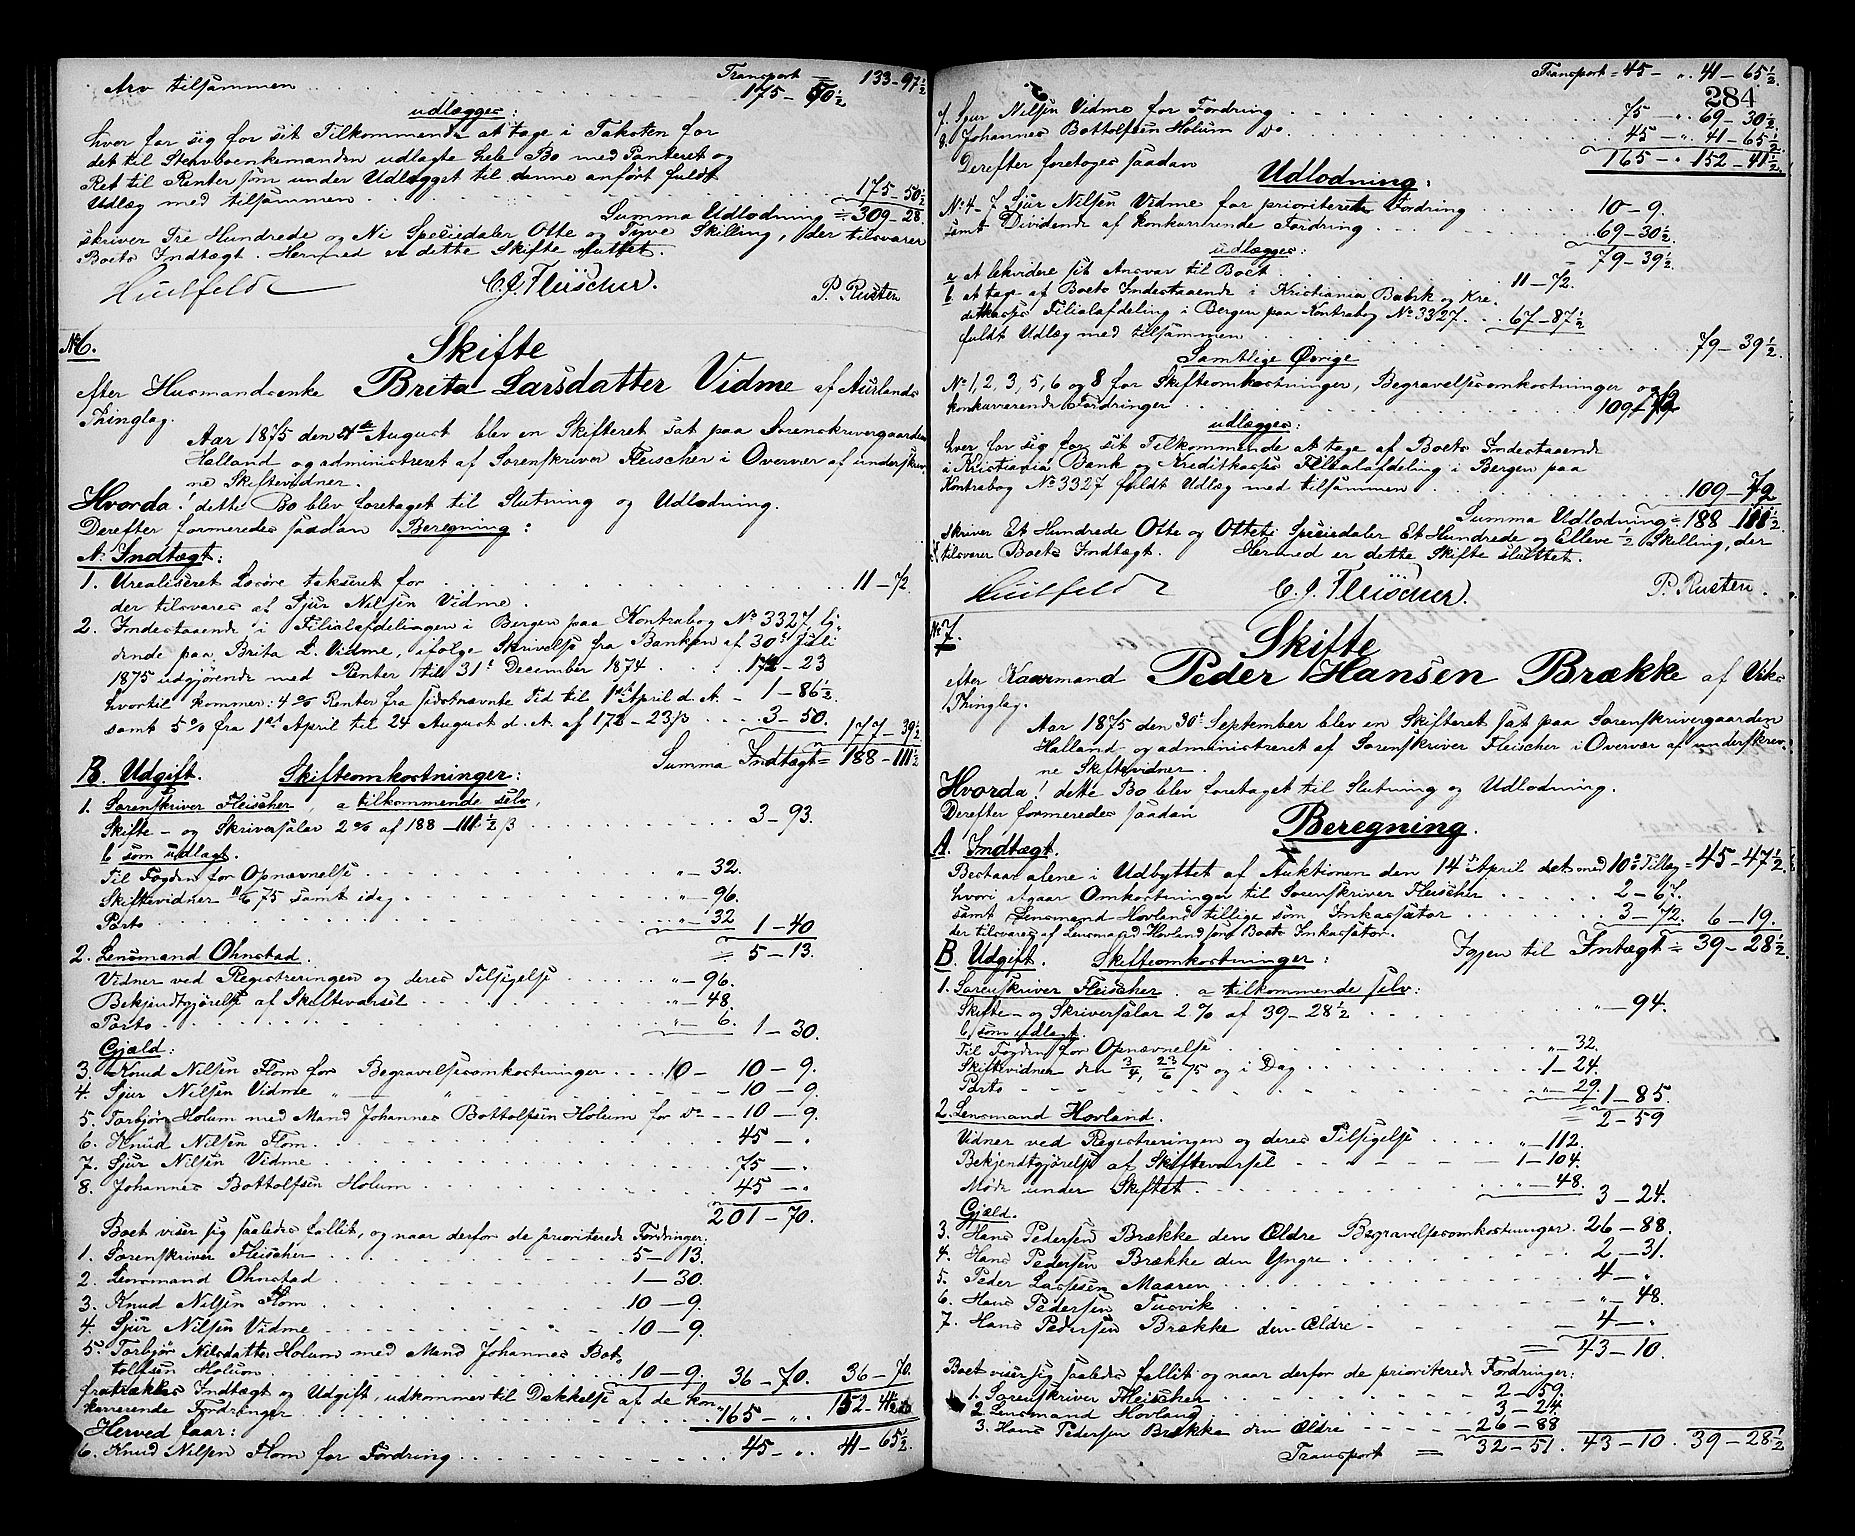 Transport = 133 - 97½
Arv tilsammen . . . 175 - 50½
udlægges:
hver for sig for sit Tilkommende at tage i Taksten for
det til Stervboenkemanden udlagte hele Bo med Panteret og
Ret til Renter som under Udlægget til denne anført fuldt
Udlæg med tilsammen . . . 175 - 50½
Summa Udlodning = 309 - 28.
skriver Tre Hundrede og Ni Speciedaler Otte og Tyve Skilling, der tilsvarer
Boets Indtægt. Hermed er dette Skifte sluttet.
Huitfeldt C. J. Fleischer. P. Rusten
No 6. Skifte
efter Husmandsenke Brita Larsdatter Vidme af Aurlands
Thinglag.
Aar 1875 den August blev en Skifteret sat paa Sorenskrivergaarden
Halland og administreret af Sorenskriver Fleischer i Overvær af underskrev-
ne Skiftevidner.
Hvorda! dette Bo blev foretaget til Slutning og Udlodning.
Derefter formeredes saadan Beregning:
A. Indtægt:
1. Urealiseret Løsøre takseret for . . . 11 - 72.
der tilsvares af Sjur Nilsen Vidme.
2. Indestaaende i Filialafdelingen i Bergen paa Kontrabog No 3327, ly-
dende paa Brita L. Vidme, ifølge Skrivelse fra Banken af 30te Juli
1875 udgjørende med Renter til 31te December 1874 . . . 172 - 23
hvortil kommer: 4 % Renter fra sidstnævnte Tid til 1ste April d. A. - 1 - 86½
samt 5 % fra 1ste April til 24 August d. A. af 172 - 23 ß . . . 3 - 50. 177 - 39½
Summa Indtægt = 188 - 111½
B. Udgift. Skifteomkostninger:
1. Sorenskriver Fleischer, a tilkommende selv,
Skifte- og Skriversalær 2 % af 188 - 111½ ß . . . 3 - 93.
b som udlagt.
Til Fogden for Opnævnelse . . . " - 32.
Skiftevidner 11/6 75 samt idag . . . " - 96.
Porto . . . " - 32 1 - 40
= 5 - 13.
2. Lensmand Ohnstad.
Vidner ved Registreringen og deres Tilsigelse . . . " - 96.
Bekjendtgjørelse af Skiftevarsel . . . " - 48.
Porto . . . " - 6. 1 - 30.
Gjæld:
3. Knud Nilsen Flom for Begravelsesomkostninger . . . 10 - 10 - 9.
4. Sjur Nilsen Vidme " — " - - 10 - 9.
5. Torbjør Holum med Mand Johannes Bottolfsen Holum for do - - 10 - 9.
6. Knud Nilsen Flom . . . 45 - "
7. Sjur Nilsen Vidme . . . 75 - "
8. Johannes Bottolfsen Holum . . . 45 - "
201 - 70.
Boet viser sig saaledes fallit, og naar derfor de prioriterede Fordringer:
1. Sorenskriver Fleischer . . . 5 - 13.
2. Lensmand Ohnstad . . . 1 - 30.
3. Knud Nilsen Flom . . . 10 - 9.
4. Sjur Nilsen Vidme . . . 10 - 9.
5. Torbjør Nilsdatter Holum med Mand Johannes Bot-
tolfsen Holum . . . 10 - 9. 36 - 70. 36 - 70.
fratrækkes Indtægt og Udgift, udkommer til Dækkelse af de kon-
kurrerende Fordringer . . . 165 - " 152 - 41½
Herved faar:
6. Knud Nilsen Flom for Fordring . . . 45 - " 41 - 65½
Transport = 45 - " 41 - 65½
284
7. Sjur Nilsen Vidme for Fordring . . . 75 - " 69 - 30½
8. Johannes Bottolfsen Holum do . . . 45 - " 41 - 65½
165 - " 152 - 41½
Derefter foretages saadan
Udlodning:
No 4 - 7 Sjur Nilsen Vidme for prioriteret Fordring . . . 10 - 9.
samt Dividende af konkurrerende Fordring . . . 69 - 30½
udlægges: = 79 - 39½
a at lekvidere sit Ansvar til Boet . . . 11 - 72.
b at tage af Boets Indestaaende i Kristiania Bank og Kre-
ditkasses Filialafdeling i Bergen paa Kontrabog No 3327. . . 67 - 87½
fuldt Udlæg med tilsammen . . . 79 - 39½
Samtlige Øvrige
No 1, 2, 3, 5, 6 og 8 for Skifteomkostninger, Begravelsesomkostninger og
konkurrerende Fordringer . . . 109 - 72
udlægges:
hver for sig for sit Tilkommende at tage af Boets Indestaaende
i Kristiania Bank og Kreditkasses Filialafdeling i Bergen paa
Kontrabog No 3327 fuldt Udlæg med tilsammen . . . 109 - 72
Summa Udlodning = 188 - 111½
skriver Et Hundrede Otte og Otteti Speciedaler Et Hundrede og Elleve ½ Skilling, der
tilsvarer Boets Indtægt. Hermed er dette Skifte sluttet.
Huitfeldt C. J. Fleischer. P. Rusten.
No 7. Skifte
efter Kaarmand Peder Hansen Brække af Viks
Thinglag.
Aar 1875 den 30te September blev en Skifteret sat paa Sorenskrivergaarden
Halland og administreret af Sorenskriver Fleischer i Overvær af underskrev-
ne Skiftevidner.
Hvorda! dette Bo blev foretaget til Slutning og Udlodning.
Derefter formeredes saadan
Beregning.
A. Indtægt.
Bestaar alene i Udbyttet af Auktionen den 14de April det med 10% Tillæg = 45 - 47½
hvori afgaar Omkostninger til Sorenskriver Fleischer . . . 2 - 67.
samt Lensmand Hovland tillige som Inkassator . . . 3 - 72. 6 - 19.
der tilsvares af Lensmand Hovland som Boets Inkassator.
Igjen til Intægt = 39 - 28½
B. Udgift. Skifteomkostninger:
1. Sorenskriver Fleischer. a tilkommende selv:
Skifte- og Skriversalær 2 % af 39 - 28½ . . . " - 94.
b, som udlagt.
Til Fogden for Opnævnelse . . . " - 32.
Skiftevidner den 3/4, 23/6 75 og i Dag . . . 1 - 24.
Porto . . . " - 29. 1 - 85.
= 2 - 59
2. Lensmand Hovland.
Vidner ved Registreringen og deres Tilsigelse . . . " - 112.
Bekjendtgjørelse af Skiftevarsel . . . 1 - 104.
Møde under Skiftet . . . " - 48. 3 - 24.
Gjæld.
3. Hans Pedersen Brække den Ældre Begravelsesomkostninger. 26 - 88.
4. Hans Pedersen Brække den Yngre . . . 2 - 31.
5. Peder Lassesen Maaren . . . 4 - "
6. Hans Pedersen Tusvik . . . " - 48.
7. Hans Pedersen Brække den Ældre . . . 4 - "
= 43 - 10.
Boet viser sig saaledes fallit og naar derfor de prioriterede Fordringer:
1. Sorenskriver Fleischer . . . 2 - 59.
2. Lensmand Hovland . . . 3 - 24.
3. Hans Pedersen Brække den Ældre . . . 26 - 88
Transport = 32 - 51. 43 - 10. 39 - 28½